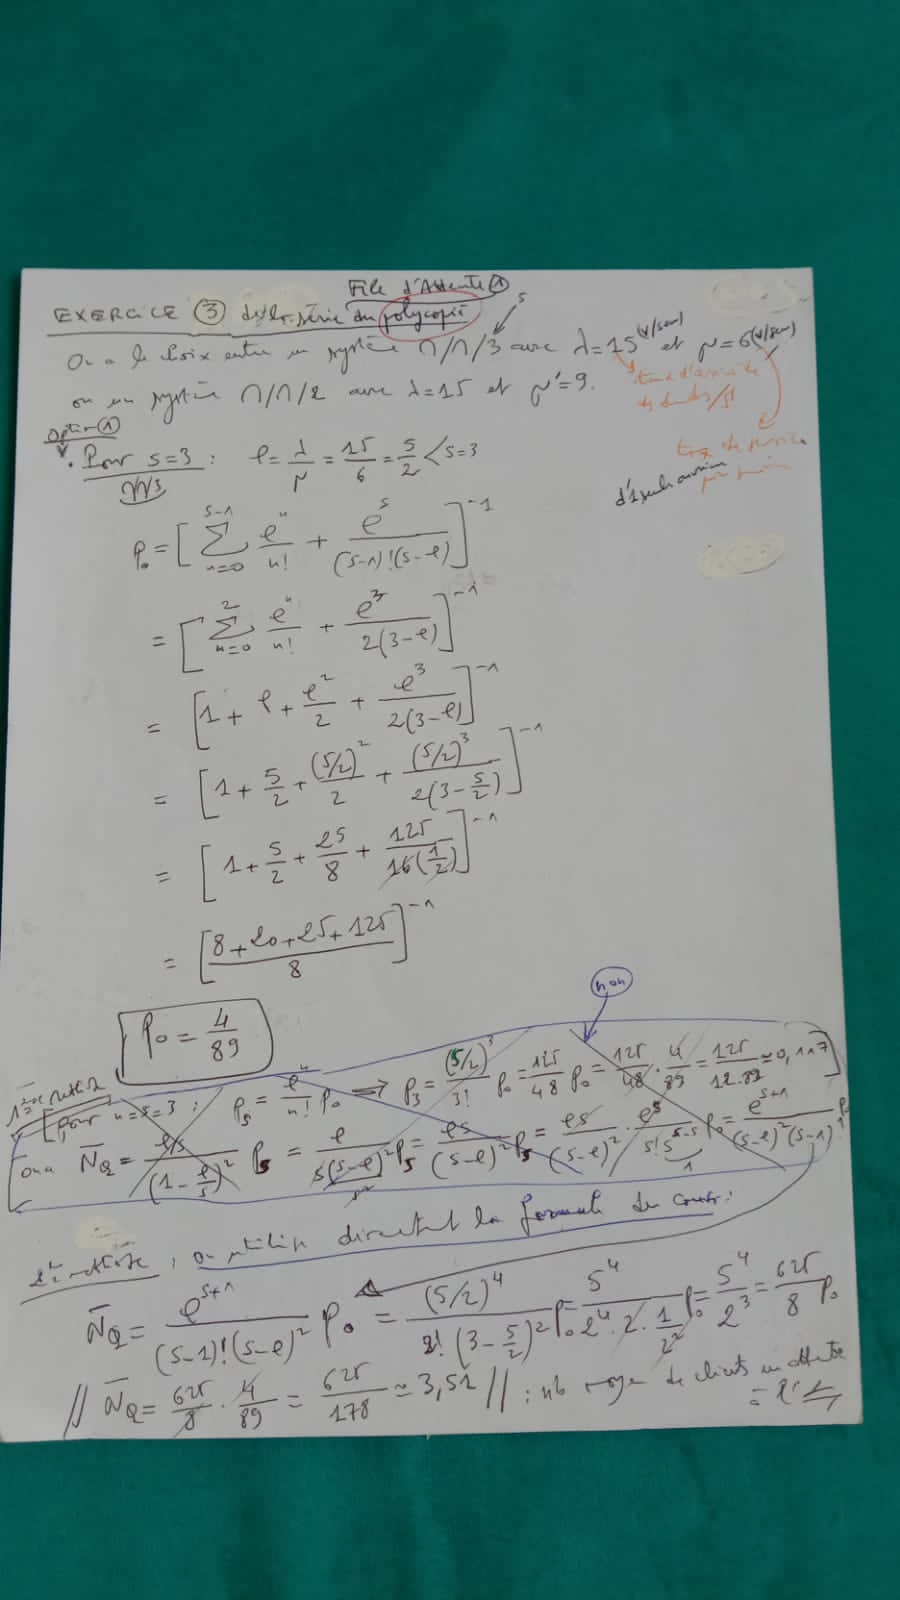 File d'Attente ①
EXERCICE ③ de la série du polycopié
s
On a le choix entre un système M/M/3 avec λ=15 (/sem) et μ=6 (/sem)
ou un système M/M/2 avec λ=15 et μ'=9.
taux d'arrivée
taux de service
d'1 seule
Option ①
• Pour s=3 : ρ = λ/μ = 15/6 = 5/2 < s=3
M/M/3
P₀ = [ Σ_{n=0}^{s-1} ρⁿ/n! + ρˢ/((s-1)!(s-ρ)) ]⁻¹
= [ Σ_{n=0}^{2} ρⁿ/n! + ρ³/(2(3-ρ)) ]⁻¹
= [ 1 + ρ + ρ²/2 + ρ³/(2(3-ρ)) ]⁻¹
= [ 1 + 5/2 + (5/2)²/2 + (5/2)³/(2(3-5/2)) ]⁻¹
= [ 1 + 5/2 + 25/8 + 125/(16(1/2)) ]⁻¹
= [ (8+20+25+125)/8 ]⁻¹
P₀ = 4/89
non
1ère méthode
[pour n=s=3 : Pₛ = ρⁿ/n! P₀ ⟹ P₃ = (5/2)³/3! P₀ = 125/48 P₀ = 125/48 · 4/89 = 125/12.89 ≃ 0,117]
on a N̄_Q = (ρ/s)/(1-ρ/s)² Pₛ = ρ/(s(s-ρ)²/s²) Pₛ = ρs/(s-ρ)² Pₛ = ρs/(s-ρ)² · ρˢ/(s! s^{s-s}) P₀ = ρ^{s+1}/((s-ρ)²(s-1)!) P₀
1
2è méthode, on utilise directement la formule du cours :
N̄_Q = ρ^{s+1}/((s-1)!(s-ρ)²) P₀ = (5/2)⁴/(2!(3-5/2)²) P₀ = 5⁴/(2⁴.2.1/2²) P₀ = 5⁴/2³ = 625/8 P₀
// N̄_Q = 625/8 · 4/89 = 625/178 ≃ 3,51 // : nb moyen de clients en attente